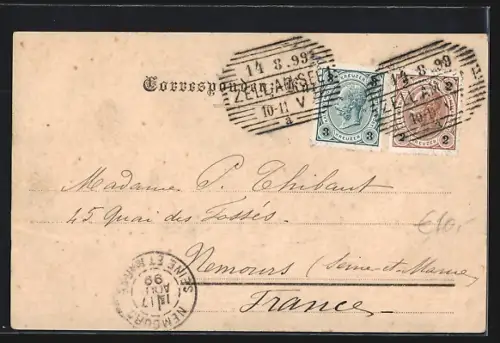 14 8. 99
ZELL AM SEE
10-11 V
a
Correspondenz-
KREUZER
3 3
KREUZER
2
2 2
14. 8. 99
ZELL AM S
10-11
a
Madame P. Thibaut
45 Quai des Fossés.
€10,-
Nemours (Seine-et-Marne)
France
NEMOURS
17
AOUT
99
SEINE ET MARNE